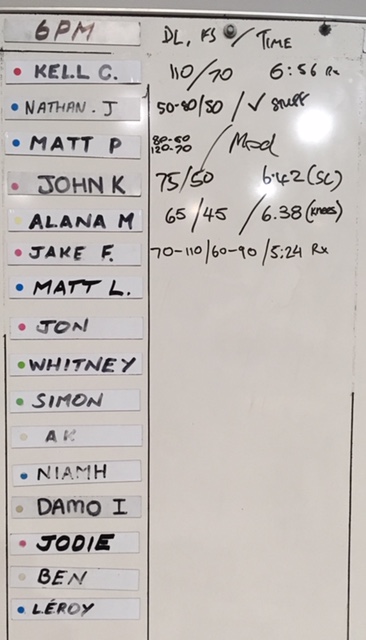 6PM DL, FS / TIME
KELL C. 110/70 6:56 Rx
NATHAN. J 50-80/50 / ✓ stuff
MATT P 80-60 120-70 / Mod
JOHN K 75/50 6.42 (SC)
ALANA M 65/45 / 6.38 (knees)
JAKE F. 70-110/60-90/5:24 Rx
MATT L.
JON
WHITNEY
SIMON
AK
NIAMH
DAMO I
JODIE
BEN
LÉROY